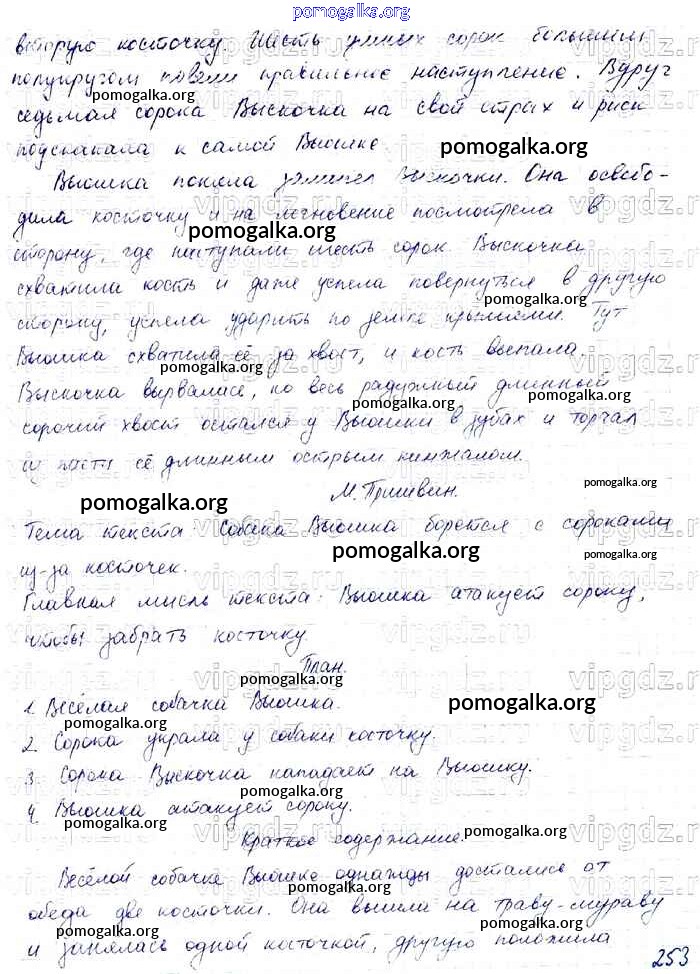 pomogalka.org
вторую косточку. Шесть умных сорок большим
полукругом повели правильное наступление. Вдруг
pomogalka.org
седьмая сорока Выскочка на свой страх и риск
подскакала к самой Вьюшке.
pomogalka.org
Вьюшка поняла замысел Выскочки. Она освобо-
дила косточку и на мгновение посмотрела в
pomogalka.org
сторону, где наступали шесть сорок. Выскочка
схватила кость и даже успела повернуться в другую
pomogalka.org
сторону, успела ударить по земле крыльями. Тут
Вьюшка схватила её за хвост, и кость выпала.
pomogalka.org
Выскочка вырвалась, но весь радужный длинный
pomogalka.org pomogalka.org
сорочий хвост остался у Вьюшки в зубах и торчал
из пасти её длинным острым кинжалом.
pomogalka.org
М. Пришвин.
pomogalka.org
Тема текста: Собака Вьюшка борется с сороками
pomogalka.org pomogalka.org
из-за косточек.
Главная мысль текста: Вьюшка атакует сороку,
чтобы забрать косточку.
План.
pomogalka.org
1. Весёлая собачка Вьюшка.
pomogalka.org
2. Сорока украла у собаки косточку.
pomogalka.org
3. Сорока Выскочка нападает на Вьюшку.
pomogalka.org
4. Вьюшка атакует сороку.
pomogalka.org
Краткое содержание.
pomogalka.org
Весёлой собачке Вьюшке однажды достались от
pomogalka.org
обеда две косточки. Она вышла на траву-мураву
pomogalka.org
и занялась одной косточкой, другую положила
253
vipgdz.ru